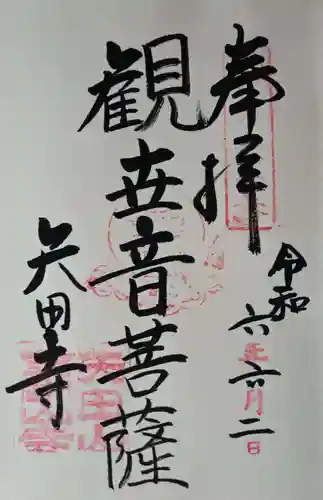 奉拝
令和
六年六月二日
観世音菩薩
矢田寺